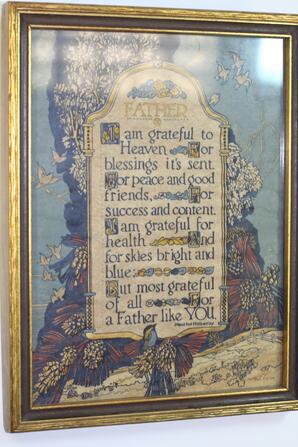 FATHER
I am grateful to
Heaven For
blessings it's sent.
For peace and good
friends, For
success and content.
I am grateful for
health And
for skies bright and
blue;
But most grateful
of all For
a Father like YOU.